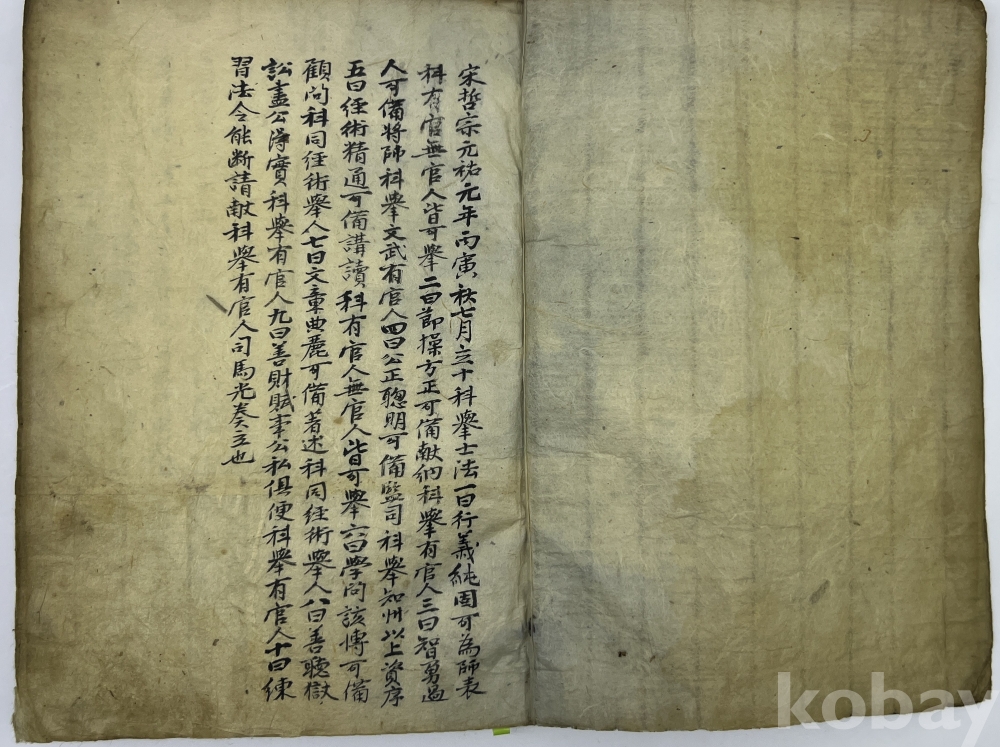 宋哲宗元祐元年丙寅秋七月立十科擧士法一曰行義純固可為師表
科有官無官人皆可擧二曰節操方正可備献納科擧有官人三曰智勇過
人可備將帥科擧文武有官人四曰公正聰明可備監司科擧知州以上資序
五曰経術精通可備講讀科有官人無官人皆可擧六曰学问該博可備
顧问科同経術擧人七曰文章典麗可備著述科同経術擧人八曰善聽獄
訟盡公淂實科擧有官人九曰善財賦事公私俱便科擧有官人十曰練
習法令能断請献科擧有官人司馬光奏立也
kobay